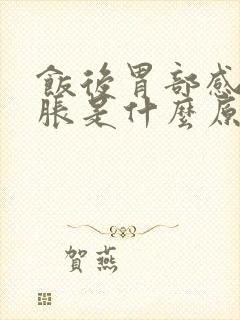 飯後胃部感
脹是什麼原
賀燕